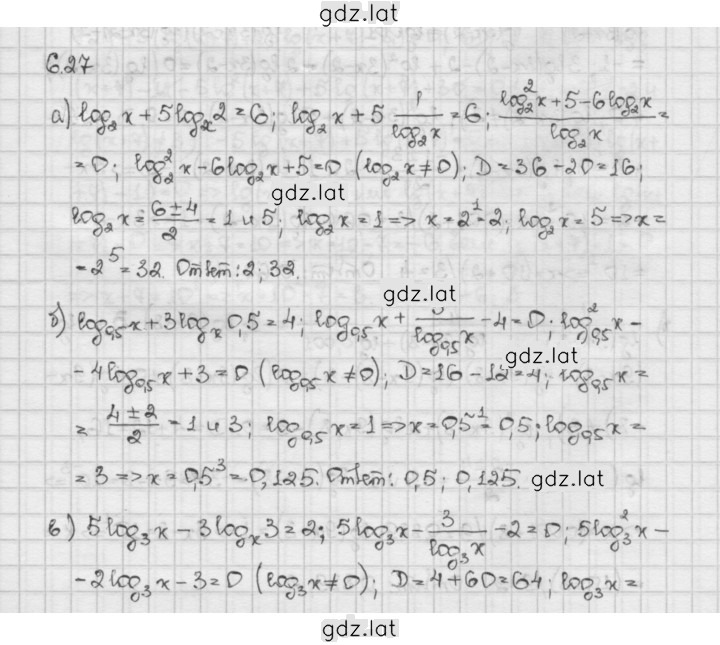 gdz.lat
6.27
а) log₂x + 5logₓ2 = 6; log₂x + 5 1/log₂x = 6; (log₂²x + 5 - 6log₂x)/log₂x =
= 0; log₂²x - 6log₂x + 5 = 0 (log₂x ≠ 0); D = 36 - 20 = 16;
gdz.lat
log₂x = (6 ± 4)/2 = 1 и 5; log₂x = 1 => x = 2¹ = 2; log₂x = 5 => x =
= 2⁵ = 32. Ответ: 2; 32.
gdz.lat
б) log₀,₅x + 3logₓ0,5 = 4; log₀,₅x + 3/log₀,₅x - 4 = 0; log₀,₅²x -
gdz.lat
- 4log₀,₅x + 3 = 0 (log₀,₅x ≠ 0); D = 16 - 12 = 4; log₀,₅x =
= (4 ± 2)/2 = 1 и 3; log₀,₅x = 1 => x = 0,5¹ = 0,5; log₀,₅x =
= 3 => x = 0,5³ = 0,125. Ответ: 0,5; 0,125.
gdz.lat
в) 5log₃x - 3logₓ3 = 2; 5log₃x - 3/log₃x - 2 = 0; 5log₃²x -
- 2log₃x - 3 = 0 (log₃x ≠ 0); D = 4 + 60 = 64; log₃x =
gdz.lat